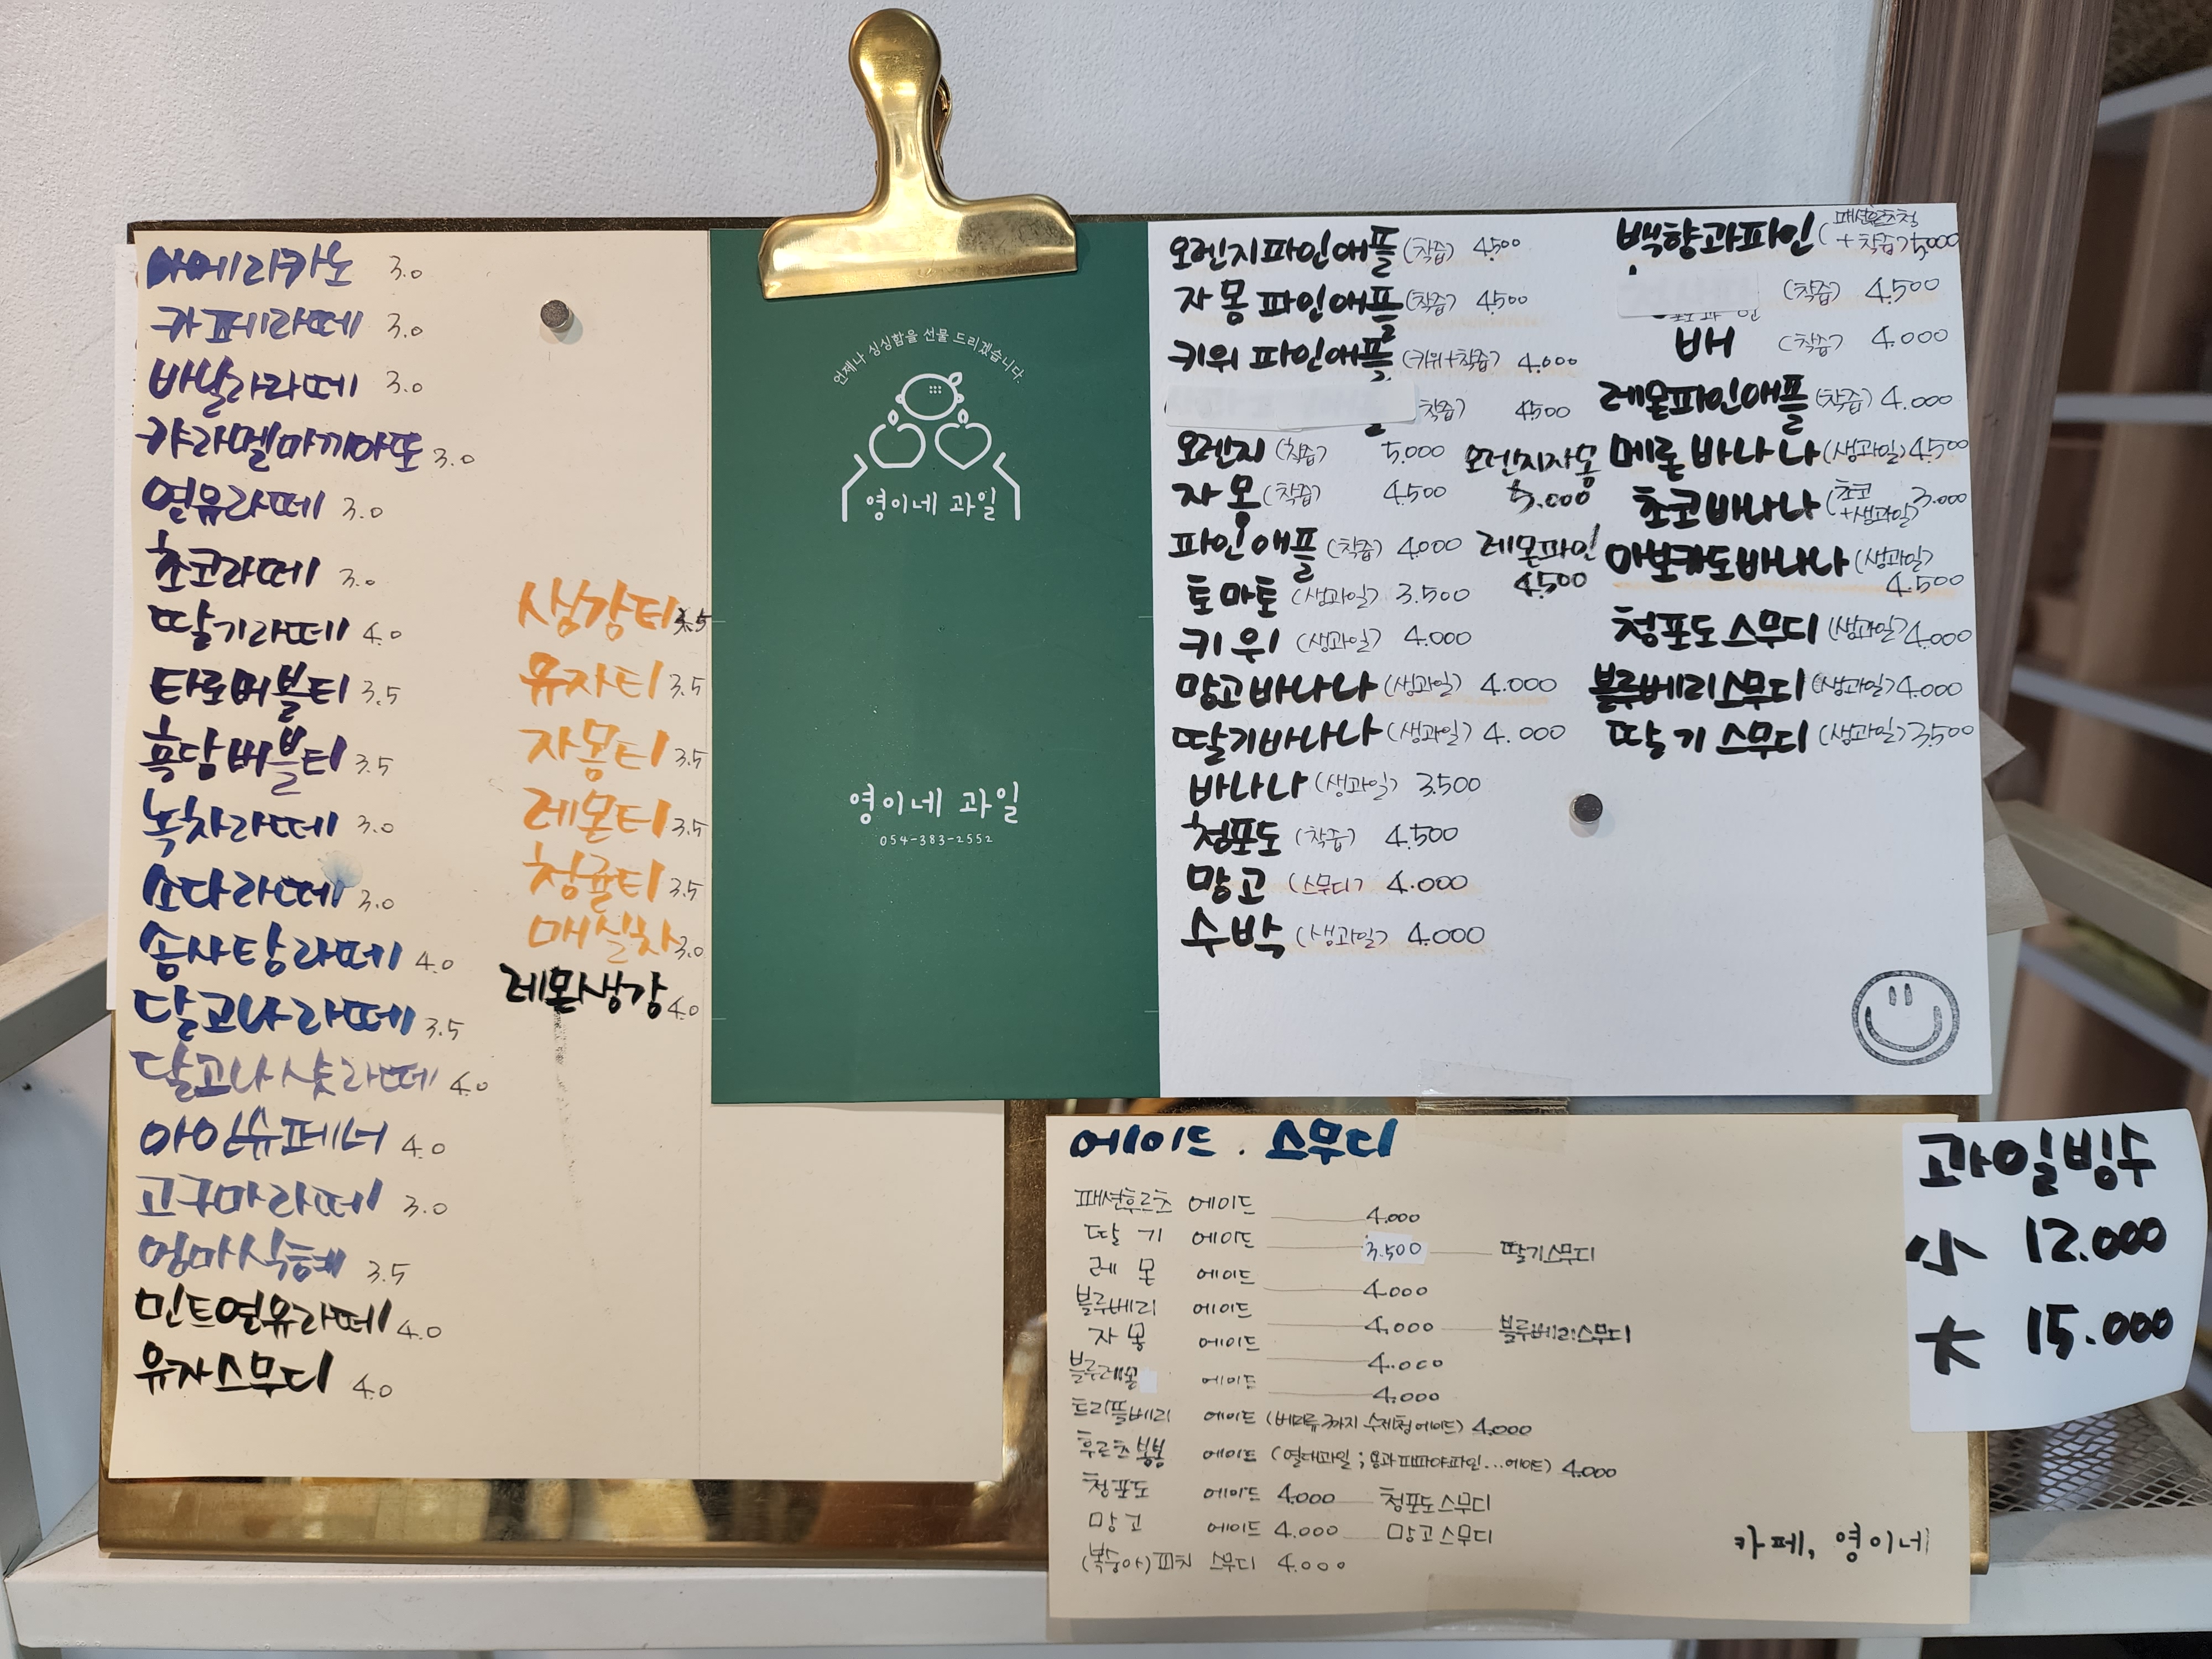 아메리카노 3.0
카페라떼 3.0
바닐라라떼 3.0
카라멜마끼아또 3.0
연유라떼 3.0
초코라떼 3.0
딸기라떼 4.0
타로버블티 3.5
흑당버블티 3.5
녹차라떼 3.0
소다라떼 3.0
솜사탕라떼 4.0
달고나라떼 3.5
달고나샷라떼 4.0
아인슈페너 4.0
고구마라떼 3.0
엄마식혜 3.5
민트연유라떼 4.0
유자스무디 4.0
생강티 3.5
유자티 3.5
자몽티 3.5
레몬티 3.5
청귤티 3.5
매실차 3.0
레몬생강 4.0
언제나 싱싱함을 선물 드리겠습니다.
영이네 과일
영이네 과일
054-383-2552
오렌지파인애플 (착즙) 4.500
자몽파인애플 (착즙) 4.500
키위파인애플 (키위+착즙) 4.000
착즙) 4.500
오렌지 (착즙) 5.000
자몽 (착즙) 4.500
파인애플 (착즙) 4.000
토마토 (생과일) 3.500
키위 (생과일) 4.000
망고바나나 (생과일) 4.000
딸기바나나 (생과일) 4.000
바나나 (생과일) 3.500
청포도 (착즙) 4.500
망고 (스무디) 4.000
수박 (생과일) 4.000
오렌지자몽
5.000
레몬파인
4.500
백향과파인 (패션후르츠청
+착즙) 5,000
(착즙) 4.500
배 (착즙) 4.000
레몬파인애플 (착즙) 4.000
메론바나나 (생과일) 4.500
초코바나나 (초코
+생과일) 3.000
아보카도바나나 (생과일)
4.500
청포도스무디 (생과일) 4.000
블루베리스무디 (생과일) 4.000
딸기스무디 (생과일) 3.500
에이드 . 스무디
패션후르츠 에이드 4.000
딸기 에이드 3.500 딸기스무디
레몬 에이드 4.000
블루베리 에이드 4.000 블루베리스무디
자몽 에이드 4.000
블루레몬 에이드 4.000
트리플베리 에이드 (베리류 3가지 수제청에이드) 4.000
후르츠봉봉 에이드 (열대과일;용과파파야파인...에이드) 4.000
청포도 에이드 4.000 청포도스무디
망고 에이드 4.000 망고스무디
(복숭아)피치 스무디 4.000
카페, 영이네
과일빙수
小 12.000
大 15.000